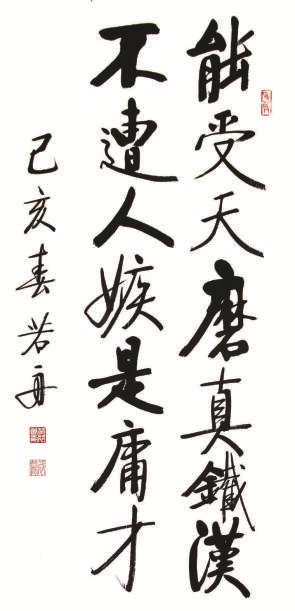 能受天磨真鐵漢
不遭人嫉是庸才
己亥春若舟